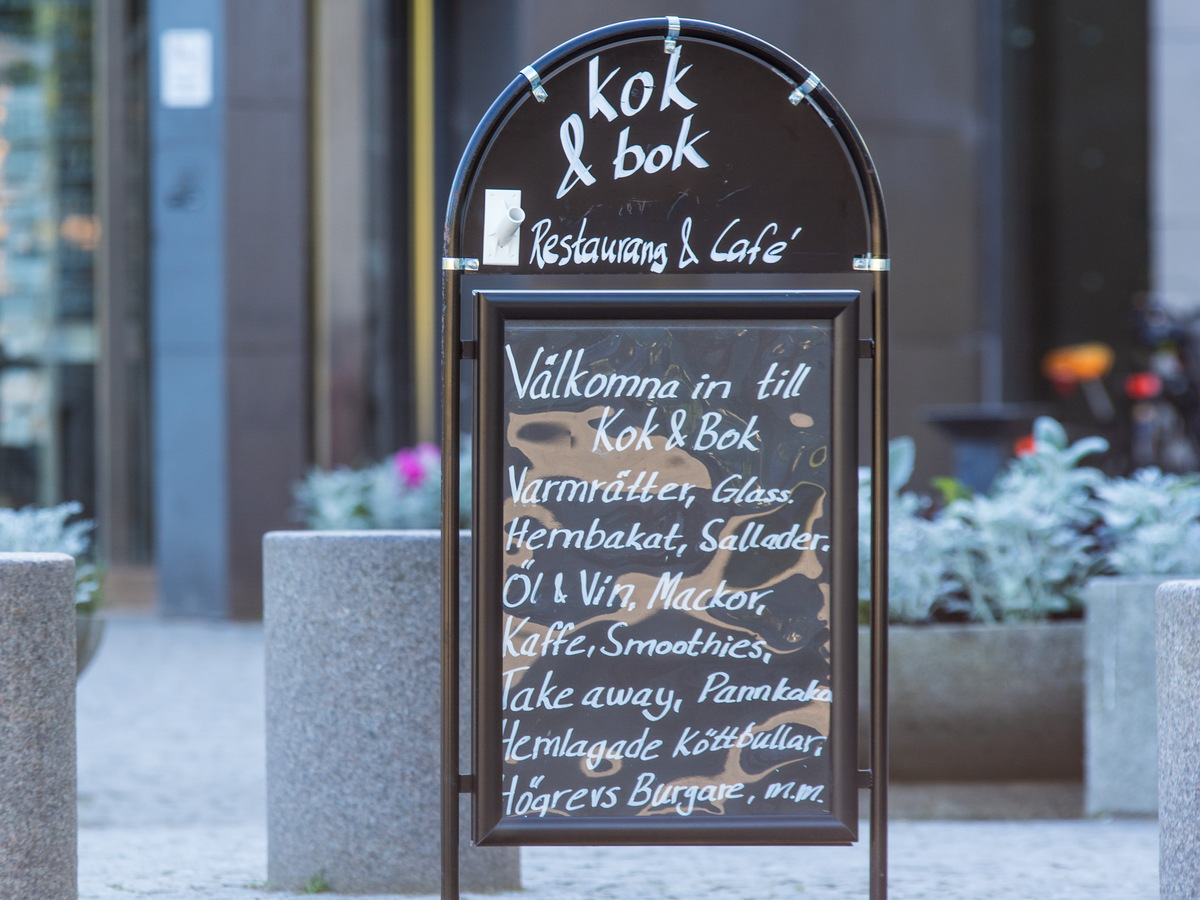 kok
& bok
Restaurang & Café
Välkomna in till
Kok & Bok
Varmrätter, Glass.
Hembakat, Sallader.
Öl & Vin, Mackor,
Kaffe, Smoothies,
Take away, Pannkaka
Hemlagade Köttbullar,
Högrevs Burgare, m.m.